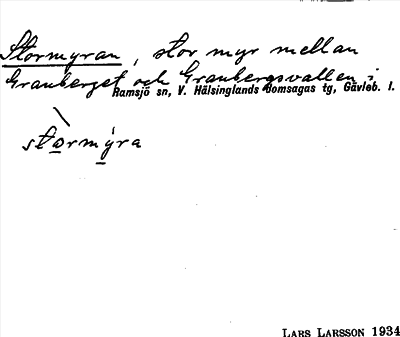 Stormyran, stor myr mellan
Granberget och Granbergsvallen i
Ramsjö sn, V. Hälsinglands domsagas tg, Gävleb. l.
stormýra
LARS LARSSON 1934